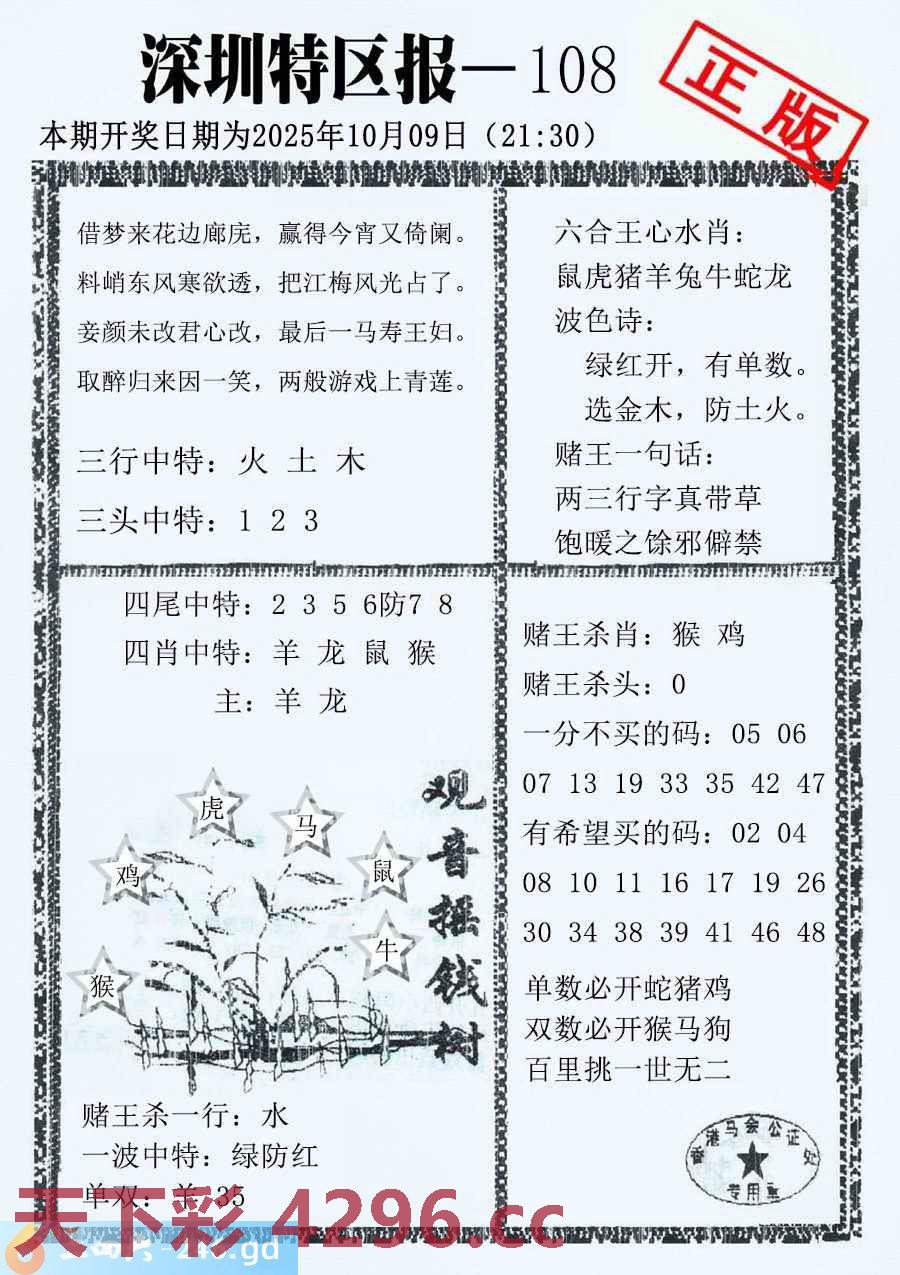 深圳特区报—108
正版
本期开奖日期为2025年10月09日（21:30）
借梦来花边廊庑，赢得今宵又倚阑。
料峭东风寒欲透，把江梅风光占了。
妾颜未改君心改，最后一马寿王妇。
取醉归来因一笑，两般游戏上青莲。
三行中特：火 土 木
三头中特：1 2 3
六合王心水肖：
鼠虎猪羊兔牛蛇龙
波色诗：
绿红开，有单数。
选金木，防土火。
赌王一句话：
两三行字真带草
饱暖之馀邪僻禁
四尾中特：2 3 5 6防7 8
四肖中特：羊 龙 鼠 猴
主：羊 龙
虎
马
鸡
鼠
牛
猴
观音摇钱树
赌王杀一行：水
一波中特：绿防红
单双：羊 35
赌王杀肖：猴 鸡
赌王杀头：0
一分不买的码：05 06
07 13 19 33 35 42 47
有希望买的码：02 04
08 10 11 16 17 19 26
30 34 38 39 41 46 48
单数必开蛇猪鸡
双数必开猴马狗
百里挑一世无二
香港马会公证处
专用章
天下彩 4296.cc
246.gd